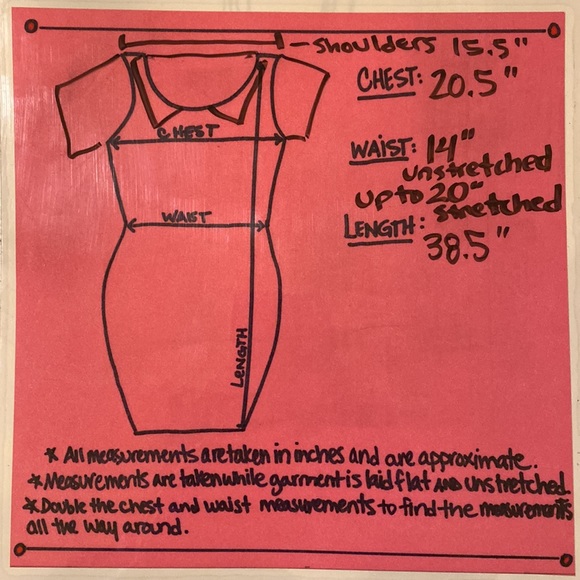 - Shoulders 15.5"
CHEST: 20.5"
CHEST
WAIST: 14"
unstretched
up to 20"
stretched
WAIST
LENGTH:
38.5"
LENGTH
* All measurements are taken in inches and are approximate.
* Measurements are taken while garment is laid flat AND unstretched.
* Double the chest and waist measurements to find the measurements
all the way around.